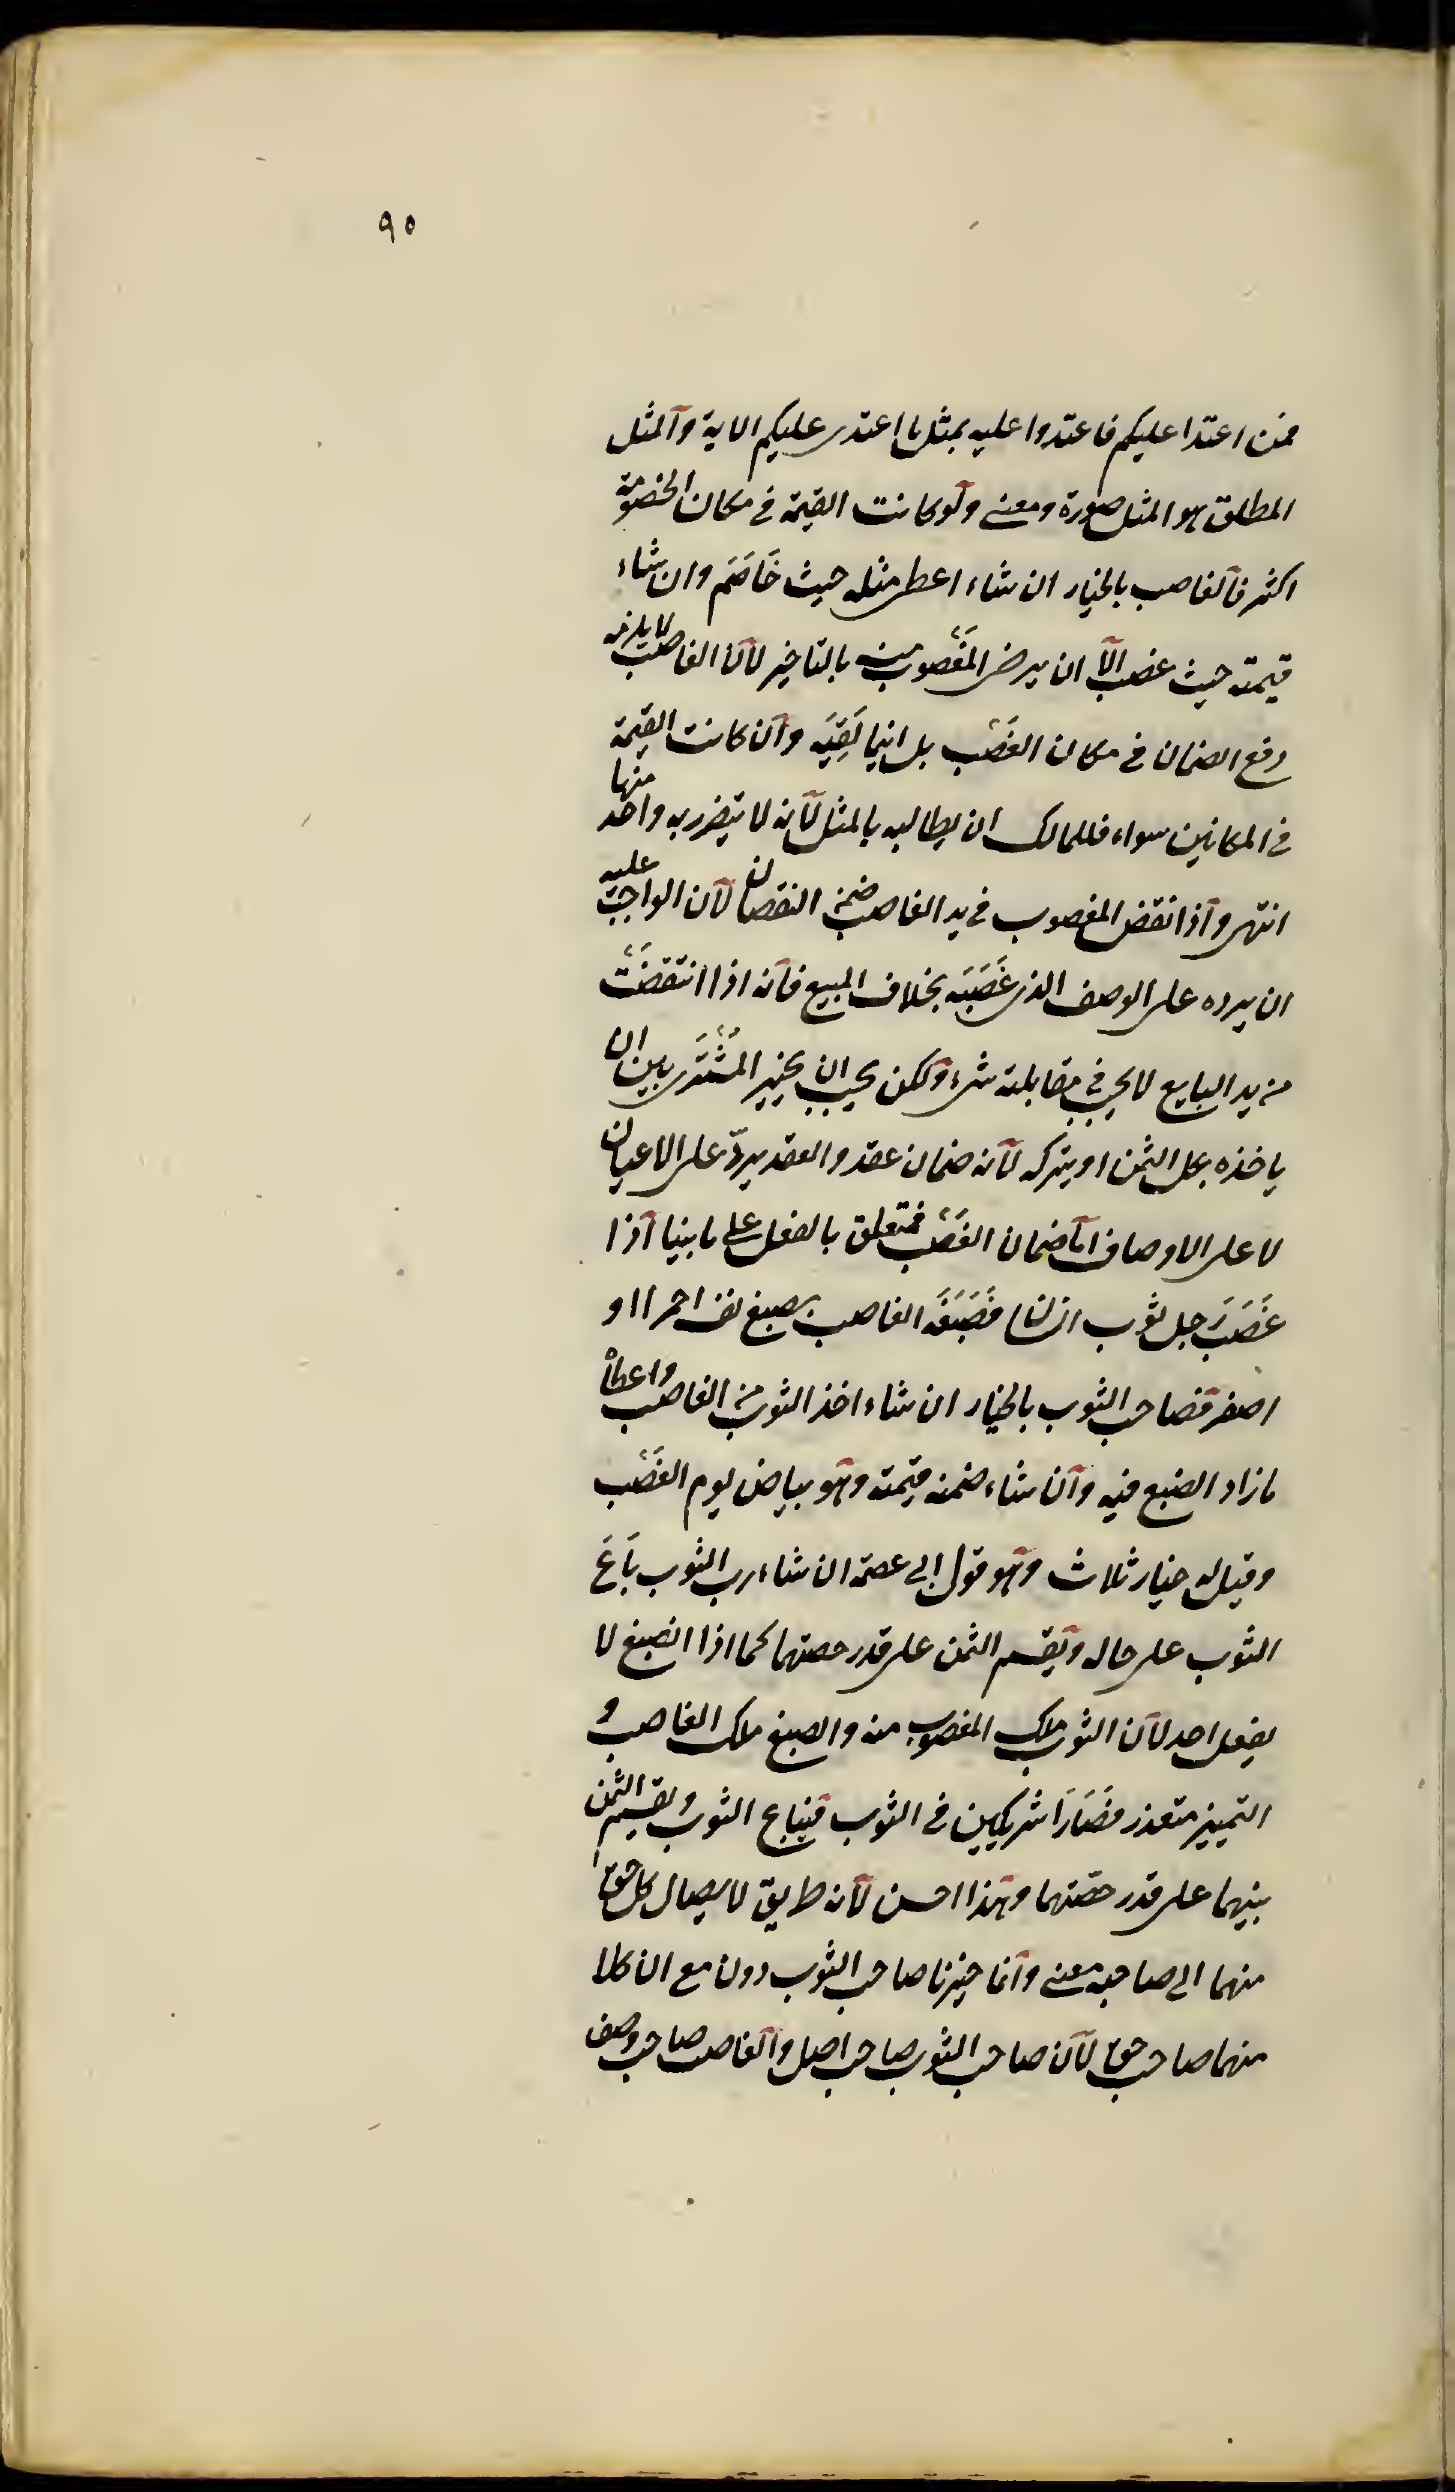 ٩٥
فمن اعتدا عليكم فاعتدوا عليه بمثل ما اعتدى عليكم الاية والمثل
المطلق هو المثل صورة ومعنى ولو كانت القيمة في مكان الخصومة
اكثر فالغاصب بالخيار ان شاء اعطى مثله حيث خَاصَم وان شاء
قيمته حيث غصب الّا ان يرضى المغصوب منه بالتاخير لان الغاصب لا يلزمه
دفع الضمان في مكان الغَصْب بل اينما لَقِيَه وان كانت القيمة
في المكانين سواء فللمالك ان يطالبه بالمثل لانه لا يتضرر به واحد منها
انتهى واذا نقض المغصوب في يد الغاصب ضمن النقصان لان الواجب عليه
ان يرده على الوصف الذى غَصَبَه بخلاف المبيع فانه اذا انتقضَت
من يد البايع لا يجب في مقابلته شىء ولكن يجب ان يخير المشترى بين ان
ياخذه بكل الثمن او يتركه لانه ضمان عقد والعقد يردّ على الاعيان
لا على الاوصاف اما ضمان الغَصْب فمتعلق بالفعل على ما بينا اذا
غَصَبَ رَجل ثوب انسان فَصَبَغَه الغاصب بصبغ نفسه احمرا او
اصفر فصاحب الثوب بالخيار ان شاء اخذ الثوب من الغاصب واعطاه
ما زاد الصبغ فيه وان شاء ضمنه قيمته وهو بياض يوم الغَصْب
وقيل له خيار ثلاث وهو قول ابى عصمة ان شاء رب الثوب بَاعَ
الثوب على حاله ويقسم الثمن على قدر حصتهما كما اذا انصبغ لا
بفعل احد لان الثوب ملك المغصوب منه والصبغ ملك الغاصب و
التمييز متعذر فصَارَا شريكين في الثوب فيباع الثوب ويقسم الثمن
بينهما على قدر حقتهما وهذا احسن لانه طريق لايصال كل حق
منهما الى صاحبه معنى وانما خيرنا صاحب الثوب دون مع ان كلا
منهما صاحب حق لان صاحب الثوب صاحب اصل والغاصب صاحب وصف